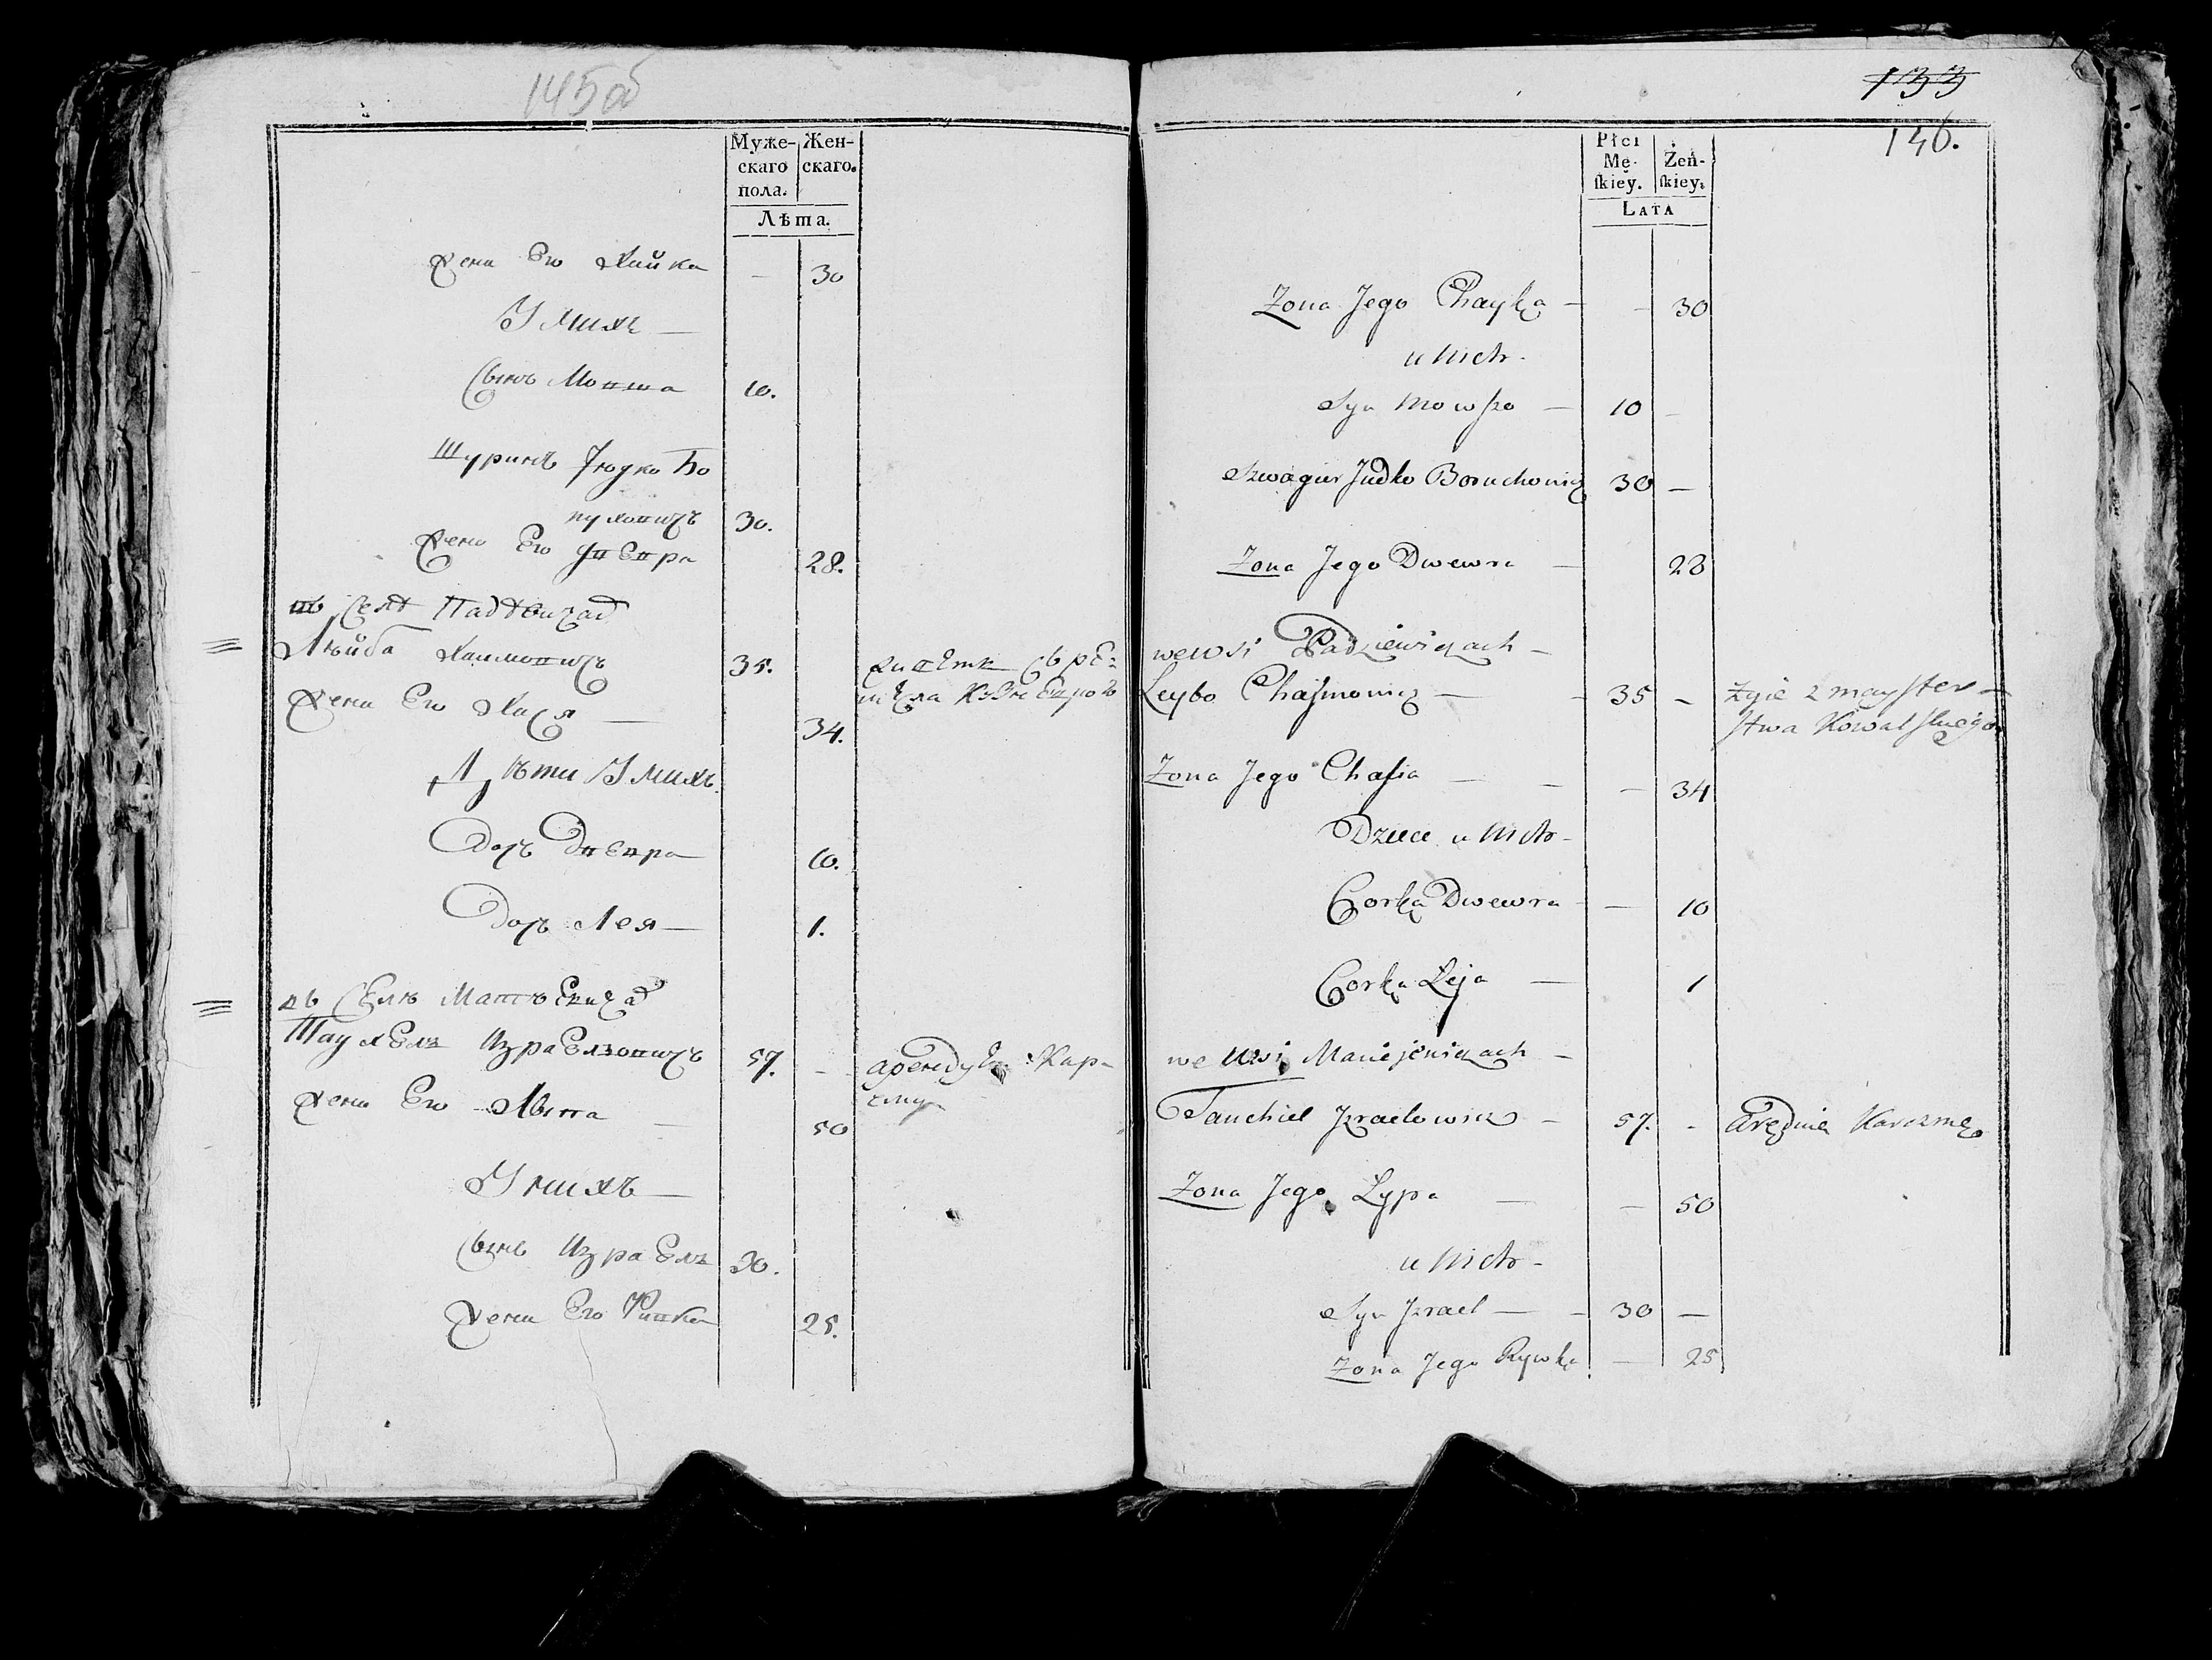 145об
Муже- Жен-
скаго скаго.
пола.
Лѣта.
Жена Его Хайка — 30
У Нихъ —
Сынъ Мовша 10.
Шуринъ Июдко Бо
руховичъ 30.
Жена Его Двевра 28.
въ Селѣ Падѣвичах
Лѣйба Хаимовичъ 35. живетъ съ ре-
месла Кузнецкого
Жена Его Хася — 34.
Дѣти У Нихъ.
Дочь Двевра 10.
Дочь Лея — 1.
въ Селѣ Матѣевичах
Таухелъ Израелевичъ 57. — арендуетъ Кар-
чму
Жена Его Лыпа — 50
У Нихъ —
Сынъ Израелъ 30.
Жена Его Ривка 25.
133
146.
Płci
Mę- Żeń-
skiey. skiey.
LATA
Zona Jego Chayka — — 30
u Nich -
Syn Mowszo — 10 —
Szwagier Judko Boruchowicz 30 —
Zona Jego Dwewra — 28
we wsi Padziewiczach —
Leybo Chajmowicz — - 35 - Zyie z mayster-
stwa Kowalskiego
Zona Jego Chasia — - — 34
Dzieci u Nich -
Corka Dwewra — 10
Corka Leja — 1
we wsi Maciejewiczach —
Tauchiel Izraelowicz — 57. - Aręduie Karczmę
Zona Jego Lypa — — 50
u Nich -
Syn Izrael — - 30 —
Zona Jego Rywka — 25